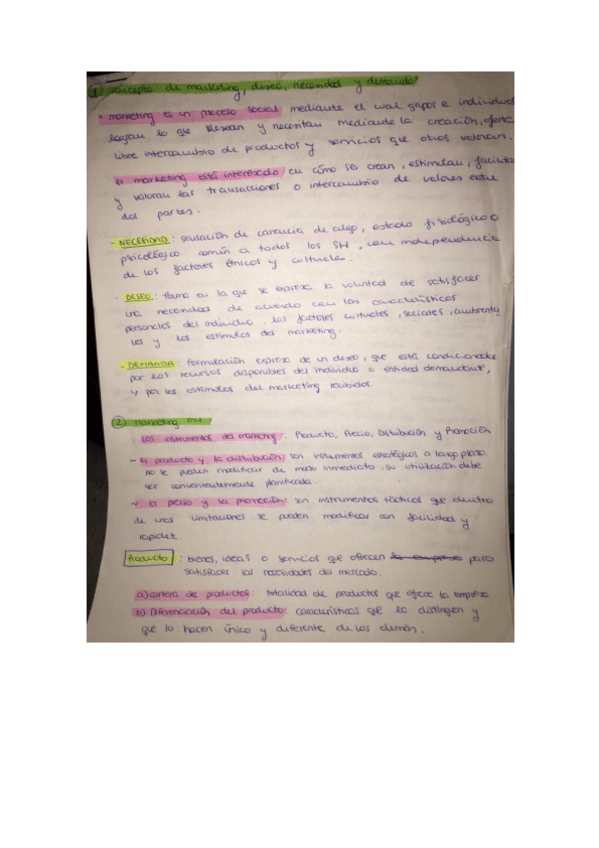 ① concepto: de marketing, deseo, necesidad y demanda
* marketing es un proceso social mediante el cual grupos e individuos
logran lo que desean y necesitan mediante la creación, oferta
libre intercambio de productos y servicios que otros valoran.
El marketing está interesado en cómo se crean, estimulan, facilitan
y valoran las transacciones o intercambio de valores entre
dos partes.
- NECESIDAD: sensación de carencia de algo, estado fisiológico o
psicológico común a todos los SH, con independencia
de los factores étnicos y culturales.
- DESEO: forma en la que se expresa la voluntad de satisfacer
una necesidad de acuerdo con las características
personales del individuo, los factores culturales, sociales, ambienta
les y los estímulos del marketing.
- DEMANDA: formulación expresa de un deseo, que está condicionada
por los recursos disponibles del individuo o entidad demandante,
y por los estímulos del marketing recibidos.
② Marketing mix
Los instrumentos del marketing: Producto, Precio, Distribución y Promoción
- El producto y la distribución son instrumentos estratégicos a largo plazo.
No se pueden modificar de modo inmediato, su utilización debe
ser convenientemente planificada.
- El precio y la promoción: son instrumentos tácticos que dentro
de unas limitaciones se pueden modificar con facilidad y
rapidez.
Producto: bienes, ideas o servicios que ofrecen la empresa para
satisfacer las necesidades del mercado.
a) cartera de productos: totalidad de productos que ofrece la empresa
b) Diferenciación del producto: características que lo distinguen y
que lo hacen único y diferente de los demás.